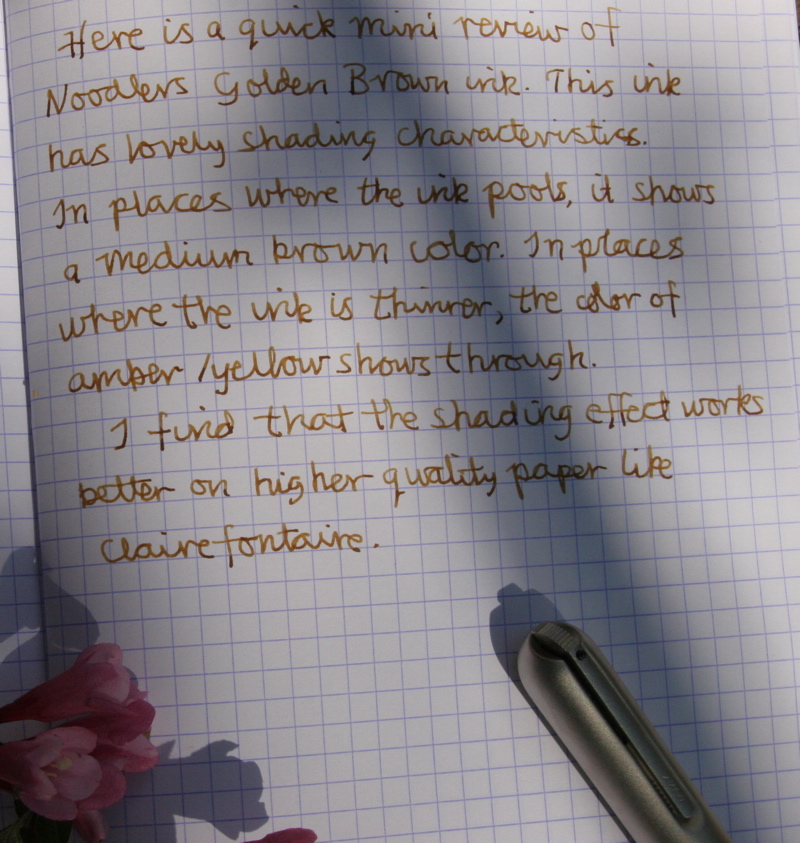 Here is a quick mini review of
Noodlers Golden Brown ink. This ink
has lovely shading characteristics.
In places where the ink pools, it shows
a medium brown color. In places
where the ink is thinner, the color of
amber/yellow shows through.
I find that the shading effect works
better on higher quality paper like
Clairefontaire.